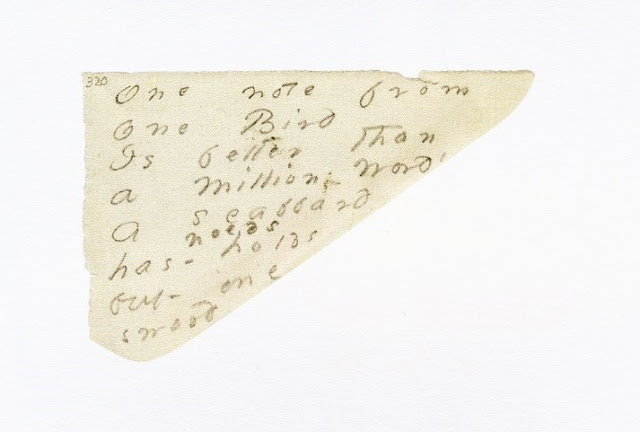 320
One note from
One Bird
Is better than
a Million words
A scabbard
needs
has - holds
but - one
sword